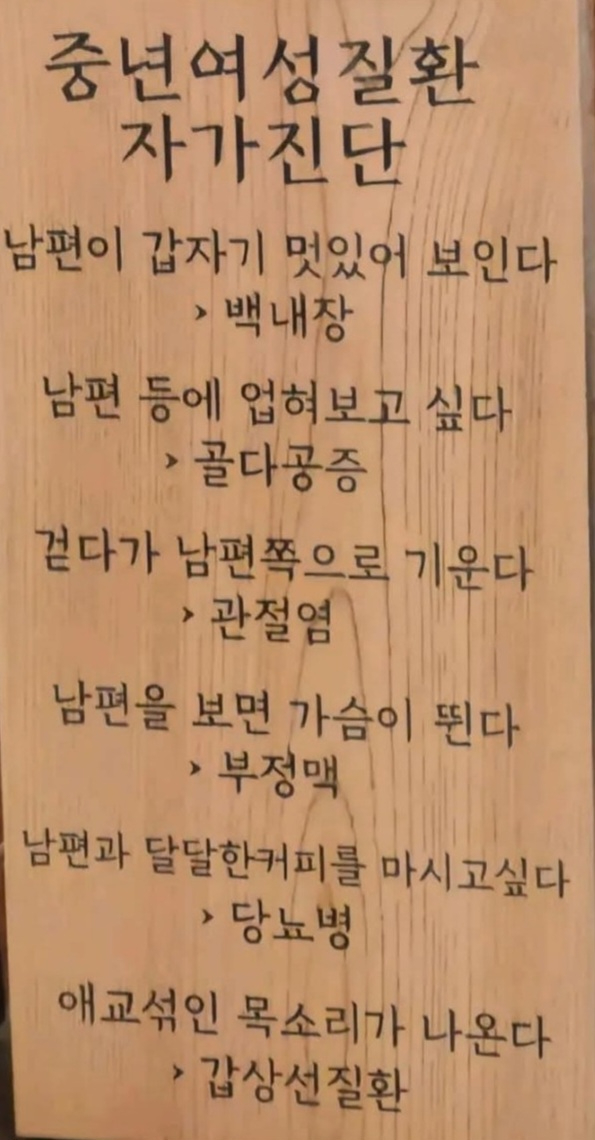 중년여성질환
자가진단
남편이 갑자기 멋있어 보인다
> 백내장
남편 등에 업혀보고 싶다
> 골다공증
걷다가 남편쪽으로 기운다
> 관절염
남편을 보면 가슴이 뛴다
> 부정맥
남편과 달달한커피를 마시고싶다
> 당뇨병
애교섞인 목소리가 나온다
> 갑상선질환